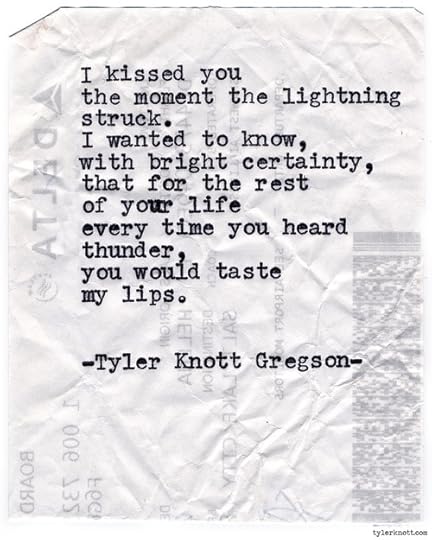 I kissed you
the moment the lightning
struck.
I wanted to know,
with bright certainty,
that for the rest
of your life
every time you heard
thunder,
you would taste
my lips.
-Tyler Knott Gregson-
DELTA
HELENA
DESTINATION
SALT LAKE CITY
1 006 732
BOARD
tylerknott.com